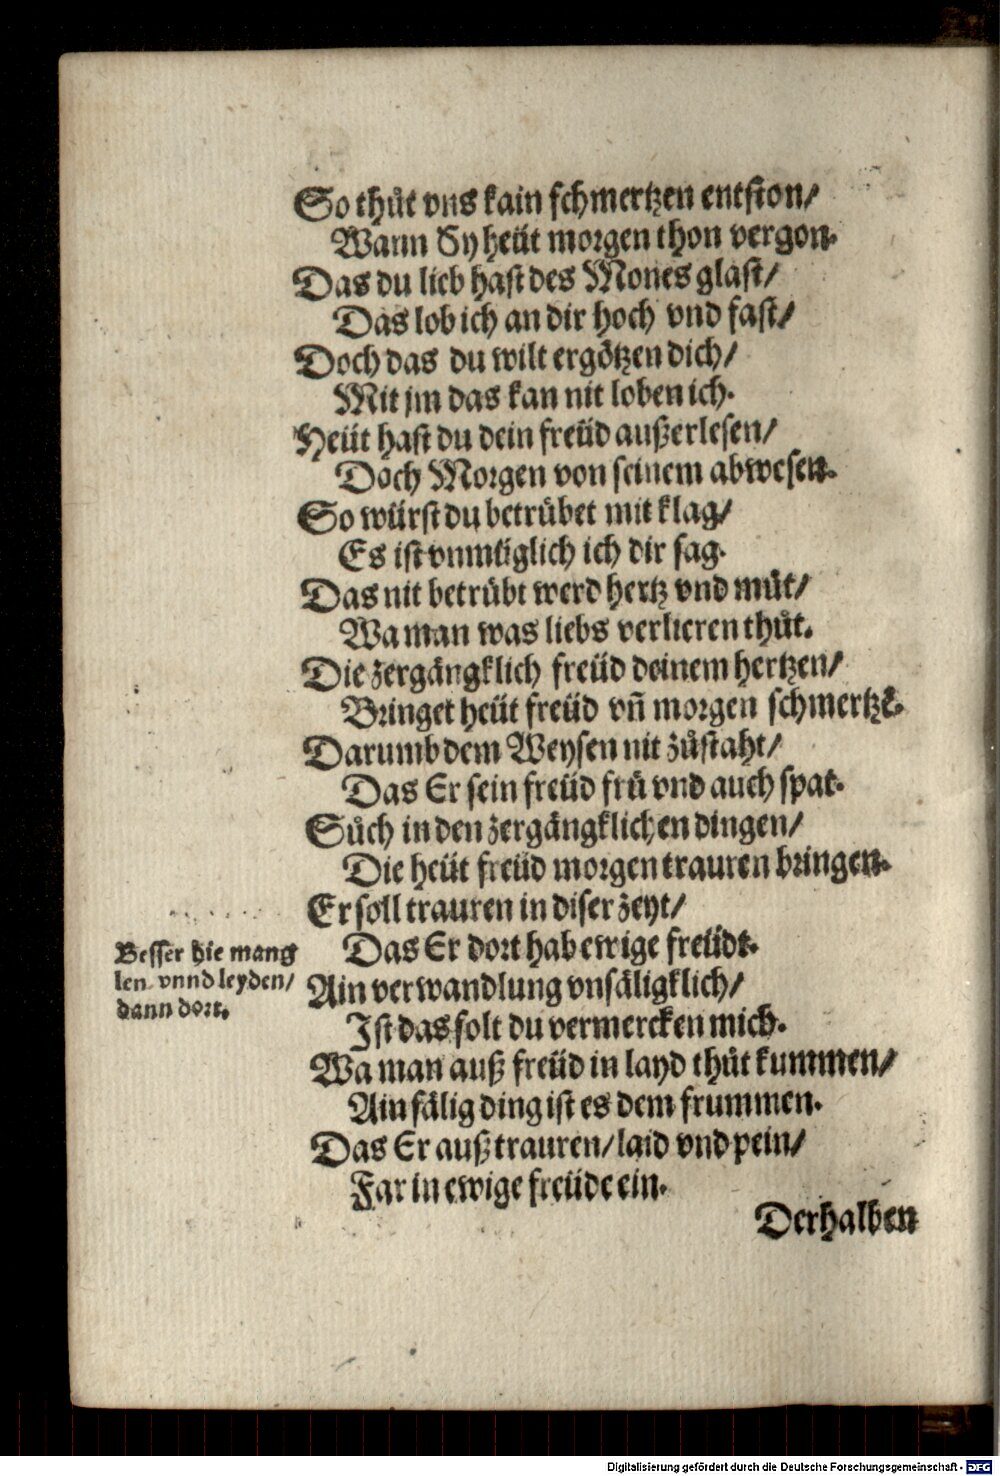 So thuͦt vns kain schmertzen entston/
Wann Sy heüt morgen thon vergon.
Das du lieb hast des Mones glast/
Das lob ich an dir hoch vnd fast/
Doch das du wilt ergoͤtzen dich/
Mit jm das kan nit loben ich.
Heüt hast du dein freüd außerlesen/
Doch Morgen von seinem abwesen.
So würst du betruͤbet mit klag/
Es ist vnmüglich ich dir sag.
Das nit betruͤbt werd hertz vnd muͦt/
Wa man was liebs verlieren thuͦt.
Die zergaͤngklich freüd deinem hertzen/
Bringet heüt freüd vñ morgen schmertzẽ.
Darumb dem Weysen nit zuͦstaht/
Das Er sein freüd fruͤ vnd auch spat.
Suͦch in den zergaͤngklichen dingen/
Die heüt freüd morgen trauren bringen.
Er soll trauren in diser zeyt/
Das Er dort hab ewige freüdt.
Besser hie mang
len vnnd leyden/
dann dort.
Ain verwandlung vnsaͤligklich/
Ist das solt du vermercken mich.
Wa man auß freüd in layd thuͦt kummen/
Ain saͤlig ding ist es dem frummen.
Das Er auß trauren/ laid vnd pein/
Far in ewige freüde ein.
Derhalben
Digitalisierung gefördert durch die Deutsche Forschungsgemeinschaft - DFG